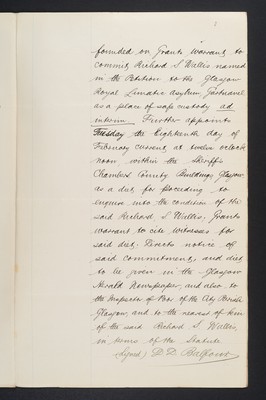 founded on, Grants Warrant to
commit Richard S. Wallis named
in the Petition to the Glasgow
Royal Lunatic Asylum, Gartnavel
as a place of safe custody ad
interim. Further appoints
Tuesday the Eighteenth day of
February current, at twelve o'clock
noon within the Sheriff's
Chambers County Buildings Glasgow
as a diet for proceeding to
enquire into the condition of the
said Richard S. Wallis; Grants
warrant to cite witnesses for
said diet; Directs notice of
said commitment and diet
to be given in the Glasgow
Herald Newspaper, and also to
the Inspector of Poor of the City Parish
Glasgow, and to the nearest of kin
of the said Richard S. Wallis,
in terms of the Statute
(Signed) D. D. Balfour